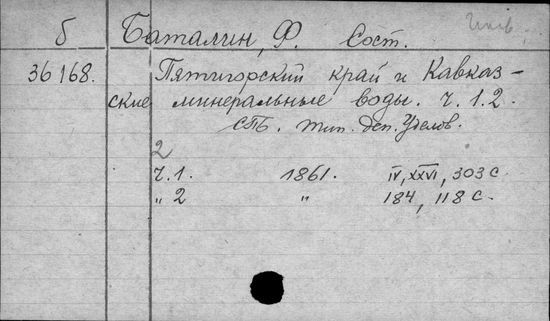 б Баталин, Ф. Сост.
36168. Пятигорский край и Кавказ-
ские минеральные воды. ч. 1.2.
СПБ. тип. деп. Уделов.
2
Ч.1. 1861. IV, XXVI, 303 с.
" 2 " 184, 118 с.